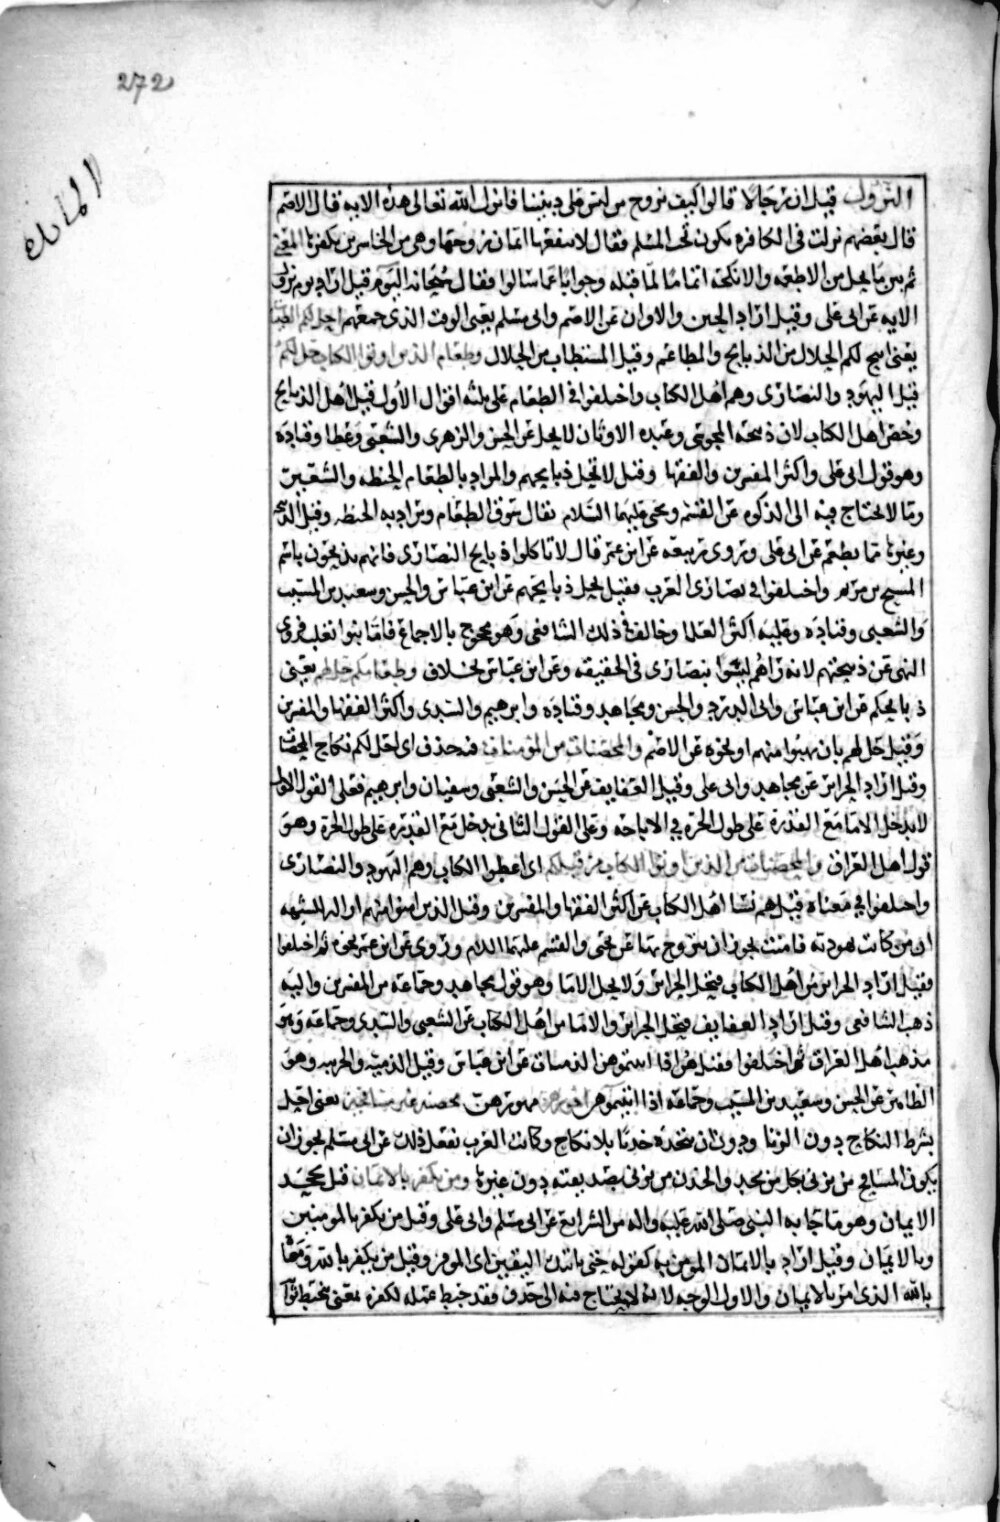 272
المائدة
النزول قيل ان رجالا قالوا كيف نزوج من ليس على ديننا فانزل الله تعالى هذه الاية قال الاصم
قال بعضهم نزلت في الكافرة تكون تحت المسلم فقال لا ينفعها ايمان زوجها وهي من الخاسرين بكفرها المعنى
ثم بين ما يحل من الاطعمة والانكحة اتماما لما قبله وجوابا عما سالوا فقال سبحانه اليوم قيل اراد يوم نزول
الاية عن ابي علي وقيل اراد الحين والاوان عن الاصم وابي مسلم يعني الوقت الذي جمعتهم احل لكم الطيبات
يعني ابيح لكم الحلال من الذبايح والمطاعم وقيل المستطاب من الحلال وطعام الذين اوتوا الكتاب حل لكم
قيل اليهود والنصارى وهم اهل الكتاب واختلفوا في الطعام على ثلثة اقوال الاول قيل اهل الذبايح
وخص اهل الكتاب لان ذبيحة المجوسي وعبدة الاوثان لا يحل عن الحسن والزهري والشعبي وعطا وقتادة
وهو قول ابي علي واكثر المفسرين والفقها وقيل لا تحل ذبايحهم والمراد بالطعام الحنطة والشعير
وما لا يحتاج فيه الى الذكوة عن القسم ويحيى عليهما السلام يقال سوق الطعام ويراد به الحنطة وقيل الذبيحة
وغيرها مما يطعم عن ابي علي وروى ربيعة عن ابن عمر قال لا تاكلوا ذبايح النصارى فانهم يذبحون باسم
المسيح بن مريم واختلفوا في نصارى العرب فقيل يحل ذبايحهم عن ابن عباس والحسن وسعيد بن المسيب
والشعبي وقتادة وعليه اكثر العلما وخالف في ذلك الشافعي وهو محجوج بالاجماع فاما بنوا تغلب فروي
النهي عن ذبيحتهم لانه راهم ليسوا بنصارى في الحقيقة وعن ابن عباس بخلاف وطعامكم حل لهم يعني
ذبايحكم عن ابن عباس وابي الدرداء والحسن ومجاهد وقتادة وابرهيم والسدي واكثر الفقها والمفسرين
وقيل حل لهم بان يهبوا منهم او نحوه عن الاصم والمحصنات من المؤمنات فيه حذف اي احل لكم نكاح المحصنات
وقيل اراد الحراير عن مجاهد وابي علي وقيل العفايف عن الحسن والشعبي وسفيان وابرهيم فعلى القول الاول
لا يدخل الاما مع القدرة على طول الحرة في الاباحة وعلى القول الثاني يدخل مع القدرة على طول الحرة وهو
قول اهل العراق والمحصنات من الذين اوتوا الكتاب من قبلكم اي اعطوا الكتاب وهم اليهود والنصارى
واختلفوا في معناه قيل هم نسا اهل الكتاب عن اكثر الفقها والمفسرين وقيل الذين امنوا منهم
ان من كانت يهودية فامنت يجوز ان يتزوج بها عن يحيى والقسم عليهما السلام وروي عن ابن عمر نحوه ثم اختلفوا
فقيل اراد الحراير من اهل الكتاب فيحل الحراير ولا يحل الاما وهو قول مجاهد وجماعة من المفسرين واليه
ذهب الشافعي وقيل اراد العفايف فيحل الحراير والاما من اهل الكتاب عن الشعبي والسدي وجماعة وهو
مذهب اهل العراق ثم اختلفوا فقيل الذميات عن ابن عباس وقيل الذمية والحربية وهو
الظاهر عن الحسن وسعيد بن المسيب وجماعة اذا اتيتموهن اجورهن مهورهن محصنين غير مسافحين يعني احل
بشرط النكاح دون الزنا ودون ان يتخذه خدنا بلا نكاح وكانت العرب تفعل ذلك عن ابي مسلم يجوز ان
يكون المسافح من يزني بكل من يجد والخدن من يزني بصديقته دون غيرها ومن يكفر بالايمان قيل يجحد
الايمان وهو ما جا به النبي صلى الله عليه واله من الشرايع عن ابي مسلم وابي علي وقيل من يكفر بالمومنين
وبالايمان وقيل اراد بالايمان المومن به كقوله حتى ياتيك اليقين اي الموقن وقيل من يكفر بالله
بالله الذي امر بالايمان والاول الوجه لانه لا يحتاج فيه الى حذف فقد حبط عمله لكفره يعني يحبط ثواب